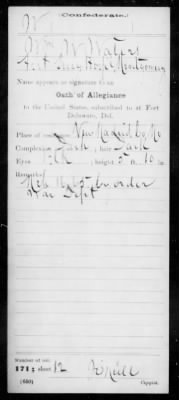 (Confederate.)
W
Wm W Waters
Name appears as signature to an
Oath of Allegiance
to the United States, subscribed to at Fort
Delaware, Del.
Place of residence New Madrid Co Mo
Complexion Dark ; hair Dark
Eyes ; height 5 ft. 10 in.
Remarks:
by order
War Dept
Number of roll:
171; sheet 12
(660) Copyist.